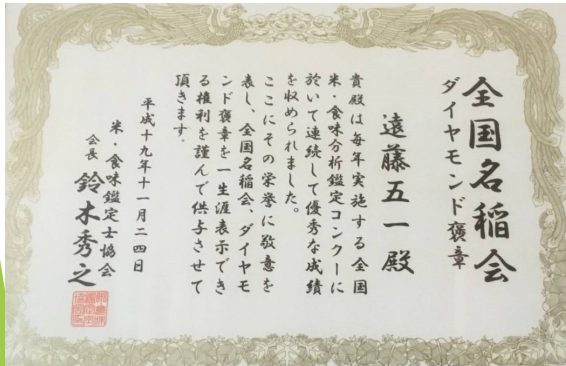 全国名稲会
ダイヤモンド褒章
遠藤五一殿
貴殿は毎年実施する全国
米・食味分析鑑定コンクールに
於いて連続して優秀な成績
を収められました。
ここにその栄誉に敬意を
表し、全国名稲会、ダイヤモ
ンド褒章を一生涯表示でき
る権利を謹んで供与させて
頂きます。
平成十九年十一月二四日
米・食味鑑定士協会
会長 鈴木秀之